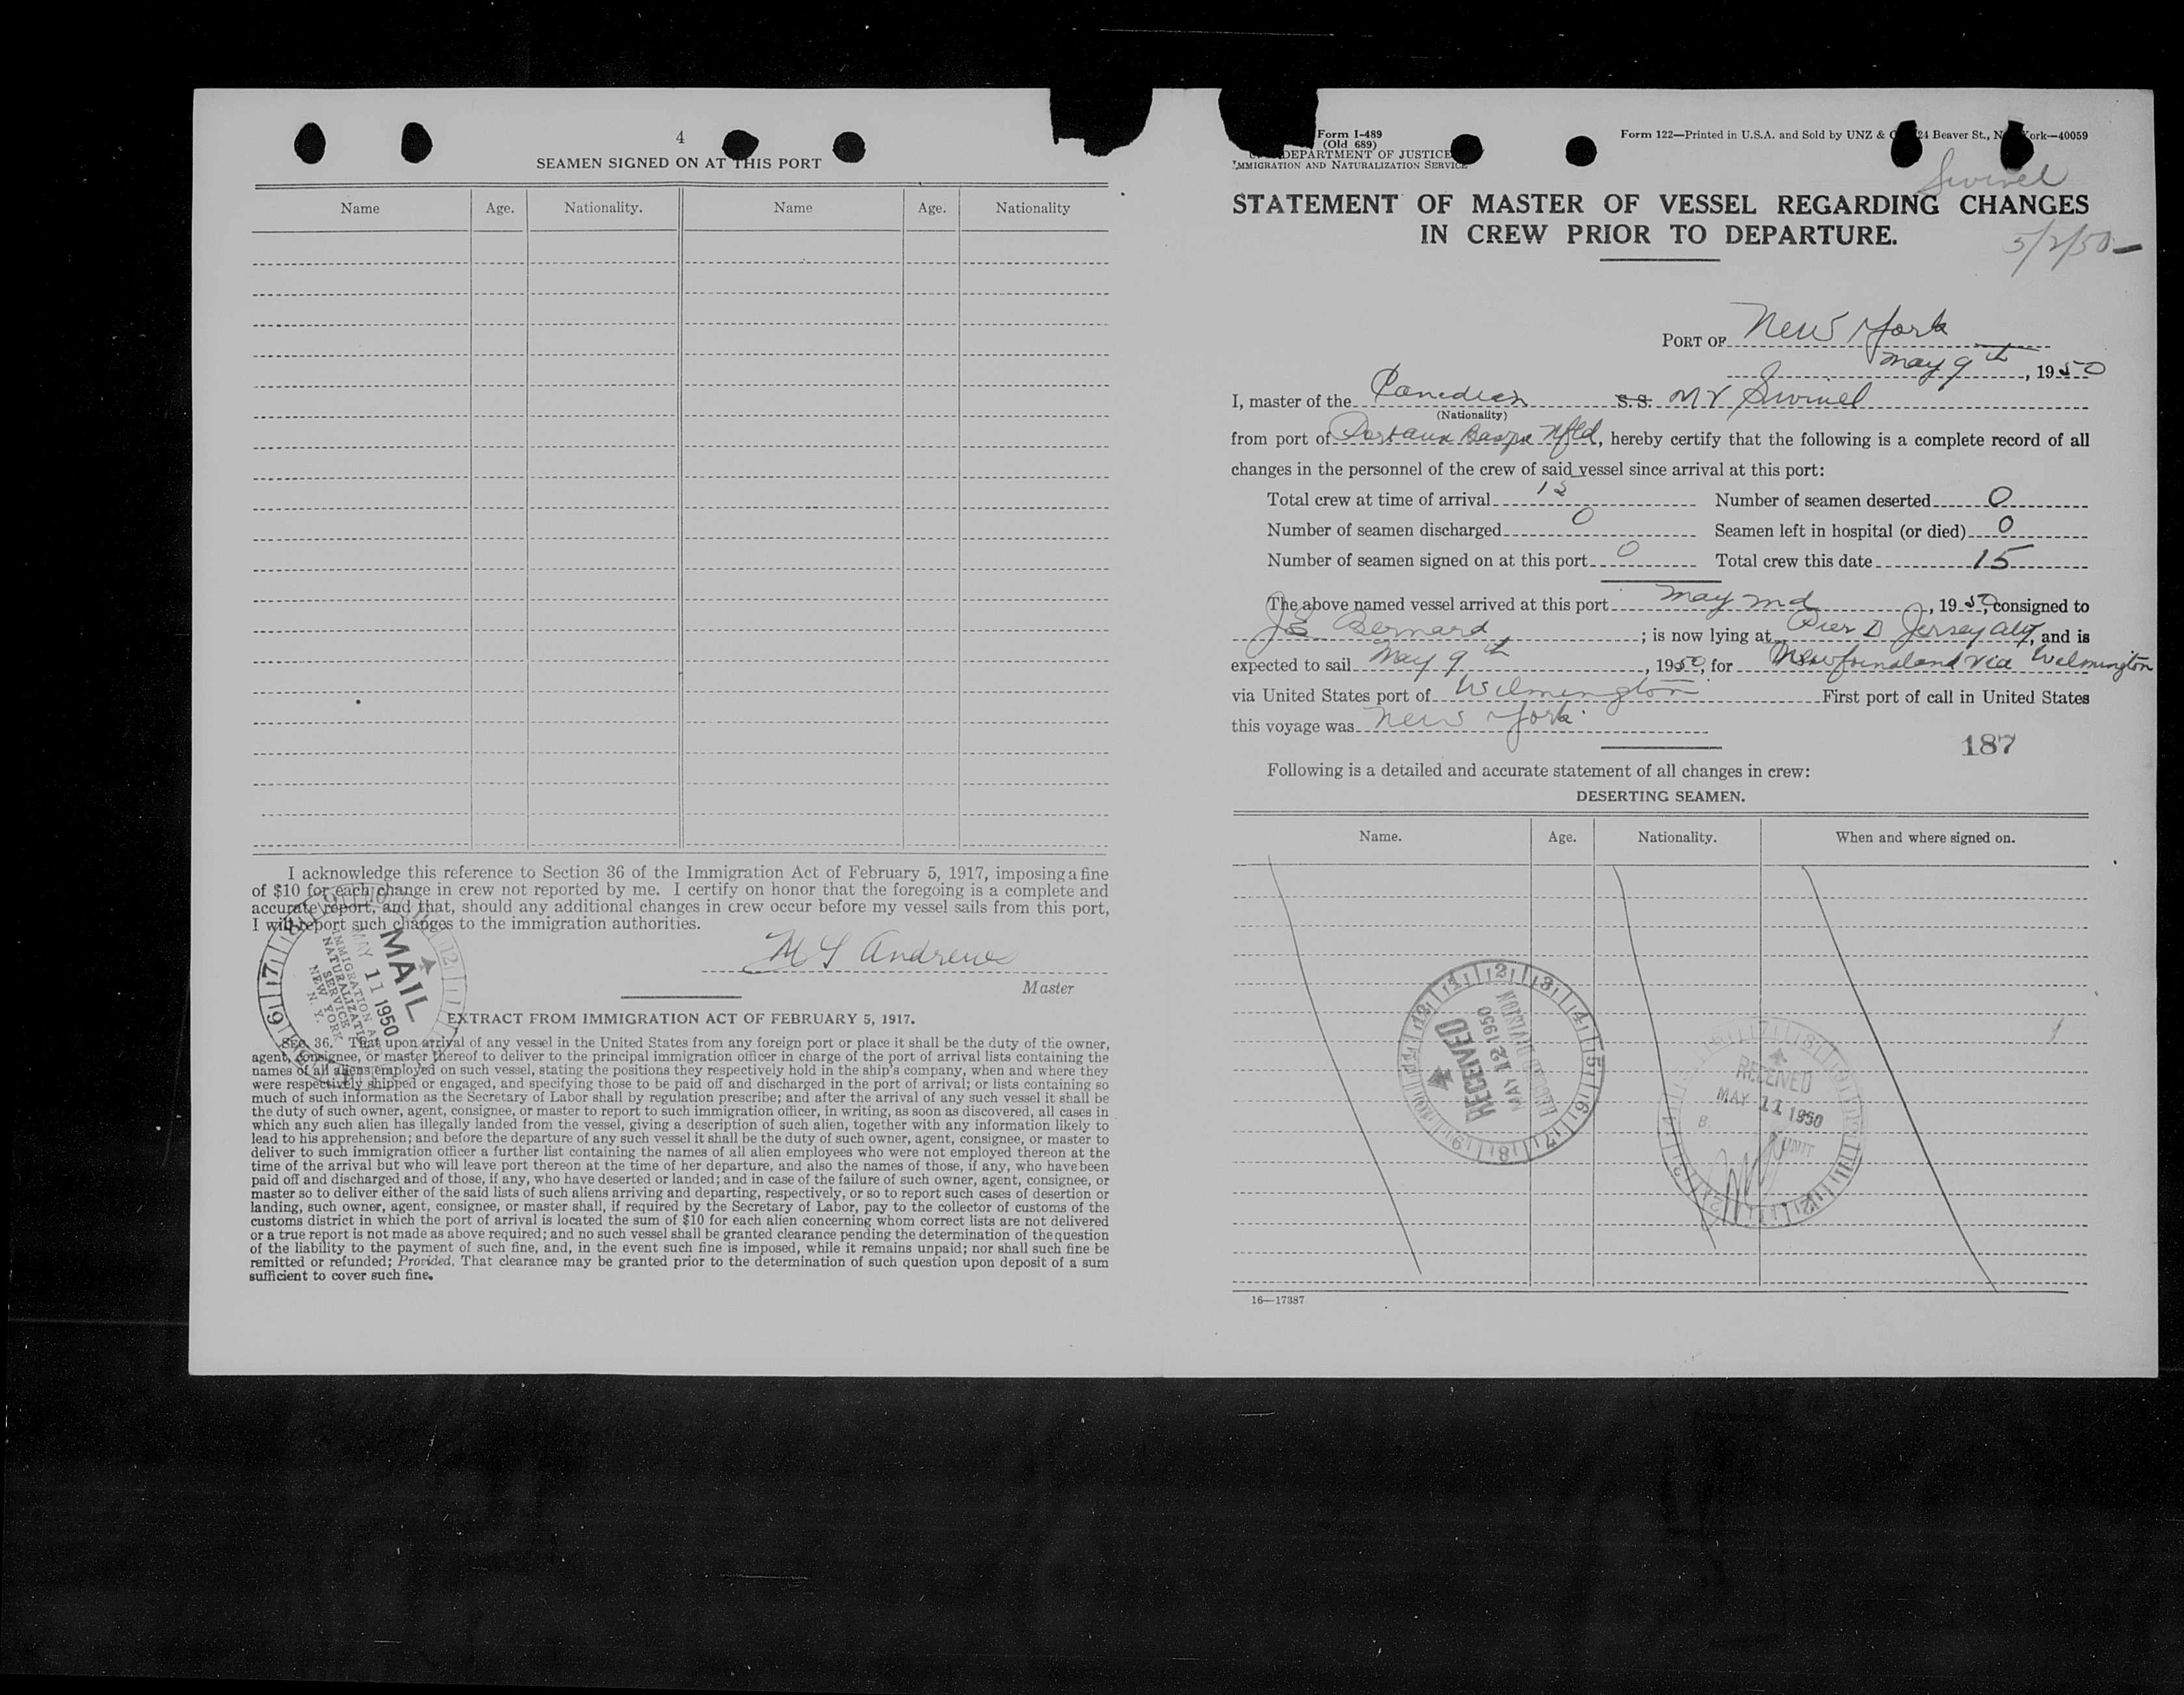 4
SEAMEN SIGNED ON AT THIS PORT
Name Age. Nationality. Name Age. Nationality
I acknowledge this reference to Section 36 of the Immigration Act of February 5, 1917, imposing a fine
of $10 for each change in crew not reported by me. I certify on honor that the foregoing is a complete and
accurate report, and that, should any additional changes in crew occur before my vessel sails from this port,
I will report such changes to the immigration authorities.
Andrews
Master
MAIL
MAY 11 1950
IMMIGRATION
NATURALIZATION
SERVICE
NEW YORK
N. Y.
EXTRACT FROM IMMIGRATION ACT OF FEBRUARY 5, 1917.
SEC. 36. That upon arrival of any vessel in the United States from any foreign port or place it shall be the duty of the owner,
agent, consignee, or master thereof to deliver to the principal immigration officer in charge of the port of arrival lists containing the
names of all aliens employed on such vessel, stating the positions they respectively hold in the ship's company, when and where they
were respectively shipped or engaged, and specifying those to be paid off and discharged in the port of arrival; or lists containing so
much of such information as the Secretary of Labor shall by regulation prescribe; and after the arrival of any such vessel it shall be
the duty of such owner, agent, consignee, or master to report to such immigration officer, in writing, as soon as discovered, all cases in
which any such alien has illegally landed from the vessel, giving a description of such alien, together with any information likely to
lead to his apprehension; and before the departure of any such vessel it shall be the duty of such owner, agent, consignee, or master to
deliver to such immigration officer a further list containing the names of all alien employees who were not employed thereon at the
time of the arrival but who will leave port thereon at the time of her departure, and also the names of those, if any, who have been
paid off and discharged and of those, if any, who have deserted or landed; and in case of the failure of such owner, agent, consignee, or
master so to deliver either of the said lists of such aliens arriving and departing, respectively, or so to report such cases of desertion or
landing, such owner, agent, consignee, or master shall, if required by the Secretary of Labor, pay to the collector of customs of the
customs district in which the port of arrival is located the sum of $10 for each alien concerning whom correct lists are not delivered
or a true report is not made as above required; and no such vessel shall be granted clearance pending the determination of the question
of the liability to the payment of such fine, and, in the event such fine is imposed, while it remains unpaid; nor shall such fine be
remitted or refunded; Provided, That clearance may be granted prior to the determination of such question upon deposit of a sum
sufficient to cover such fine.
Form I-489
(Old 689)
DEPARTMENT OF JUSTICE
IMMIGRATION AND NATURALIZATION SERVICE
Form 122—Printed in U.S.A. and Sold by UNZ & 24 Beaver St., N ork—40059
Swivel
STATEMENT OF MASTER OF VESSEL REGARDING CHANGES
IN CREW PRIOR TO DEPARTURE.
5/2/50
PORT OF New York
May 9th, 1950
I, master of the Canadian S.S. MV Swivel
(Nationality)
from port of Port aux Basque Nfld, hereby certify that the following is a complete record of all
changes in the personnel of the crew of said vessel since arrival at this port:
Total crew at time of arrival 15 Number of seamen deserted 0
Number of seamen discharged 0 Seamen left in hospital (or died) 0
Number of seamen signed on at this port 0 Total crew this date 15
The above named vessel arrived at this port May , 1950, consigned to
JE Bernard ; is now lying at Pier D Jersey City, and is
expected to sail May 9th, 1950, for Newfoundland via Wilmington
via United States port of Wilmington First port of call in United States
this voyage was New York.
187
Following is a detailed and accurate statement of all changes in crew:
DESERTING SEAMEN.
Name. Age. Nationality. When and where signed on.
RECEIVED
MAY 12 1950
DIVISION
RECEIVED
MAY 11 1950
UNIT
16—17387